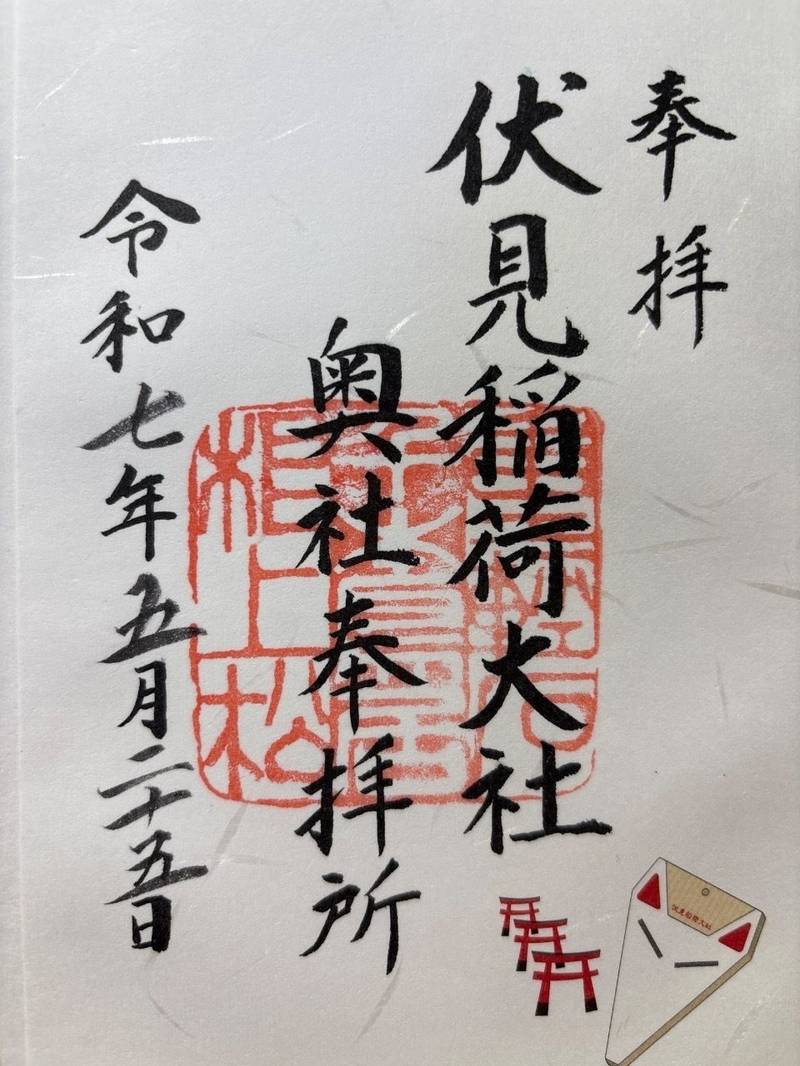 奉拝
伏見稲荷大社
奥社奉拝所
令和七年五月二十五日
伏見稲荷大社